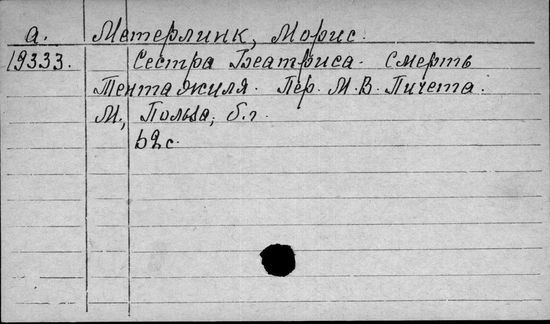 а. Метерлинк, Морис.
19333. Сестра Беатриса. Смерть
Тентажиля. Пер. М.В. Пичета.
М., Польза, б.г.
62с.